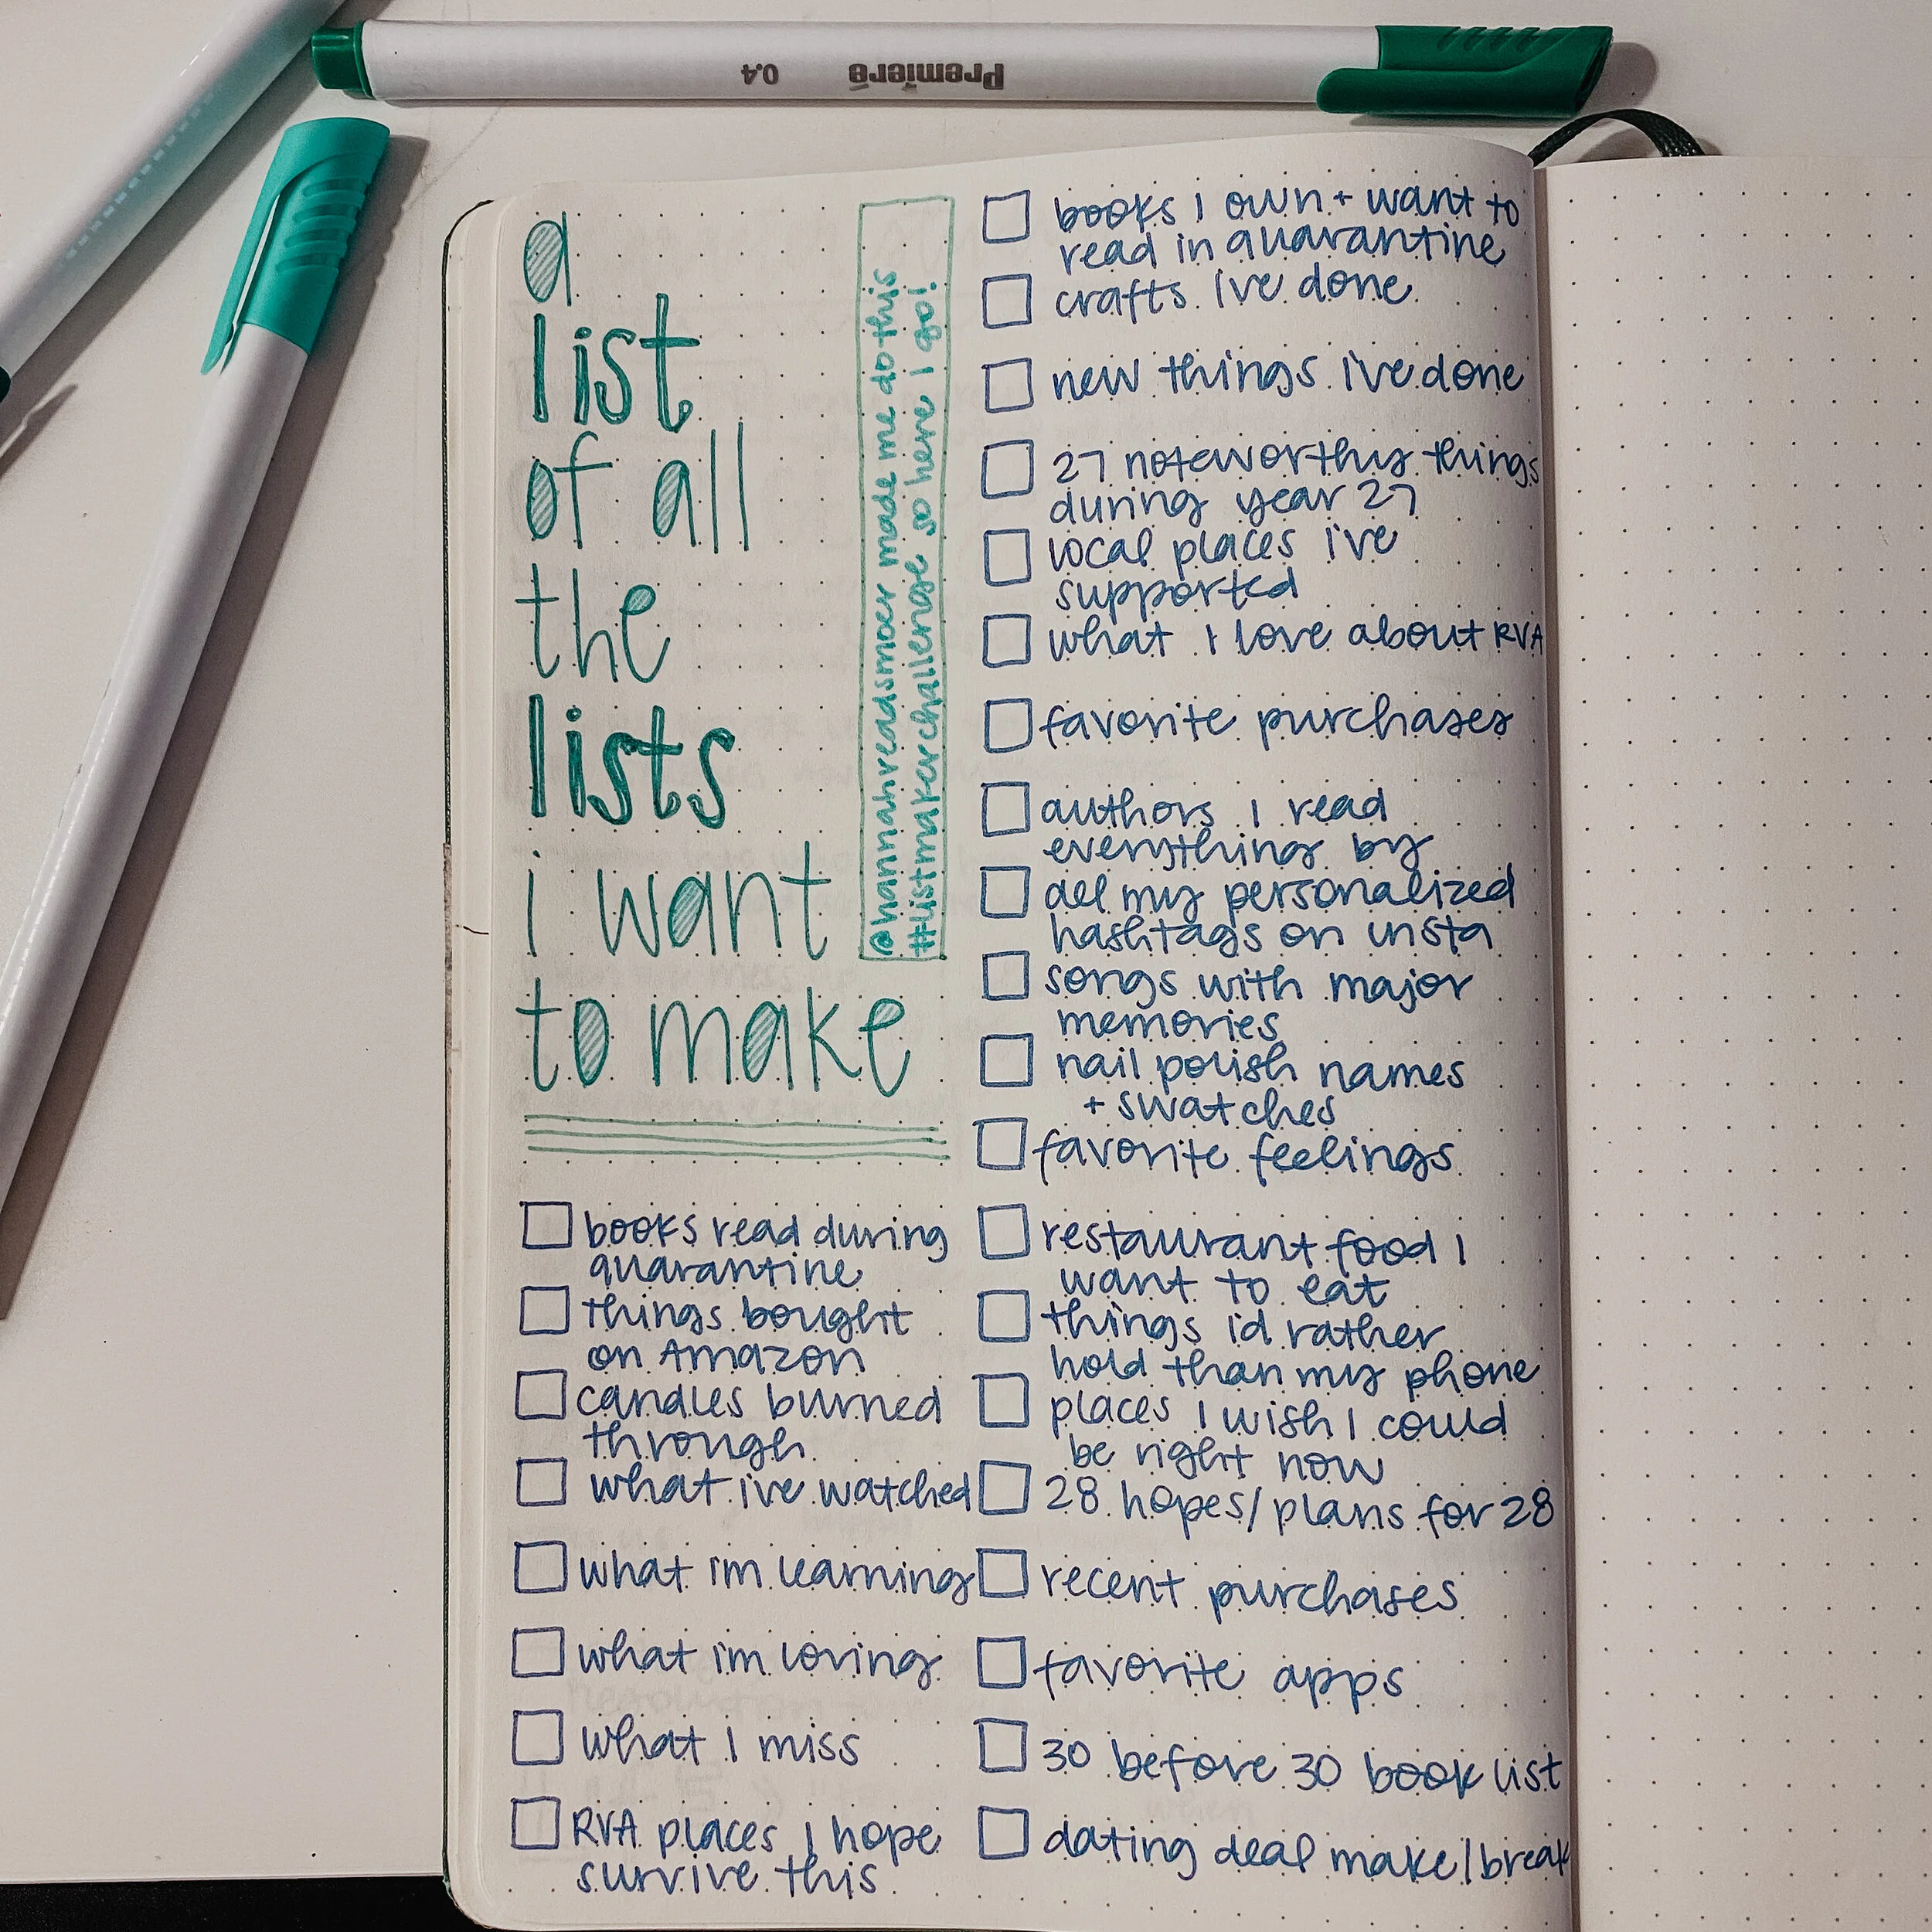 Premiere 0.4
a
list
of all
the
lists
i want
to make
@hannahreadsmoer made me do this
#listmakerchallenge so here I go!
books read during
quarantine
things bought
on Amazon
candles burned
through
what ive watched
what im learning
what im loving
what I miss
RVA places I hope
survive this
books I own + want to
read in quarantine
crafts Ive done
new things I've done
27 noteworthy things
during year 27
local places i've
supported
what I love about RVA
favorite purchases
authors I read
everything by
all my personalized
hashtags on insta
songs with major
memories
nail polish names
+ swatches
favorite feelings
restaurant food I
want to eat
things id rather
hold than my phone
places I wish I could
be right now
28 hopes/plans for 28
recent purchases
favorite apps
30 before 30 book list
dating deal make/break